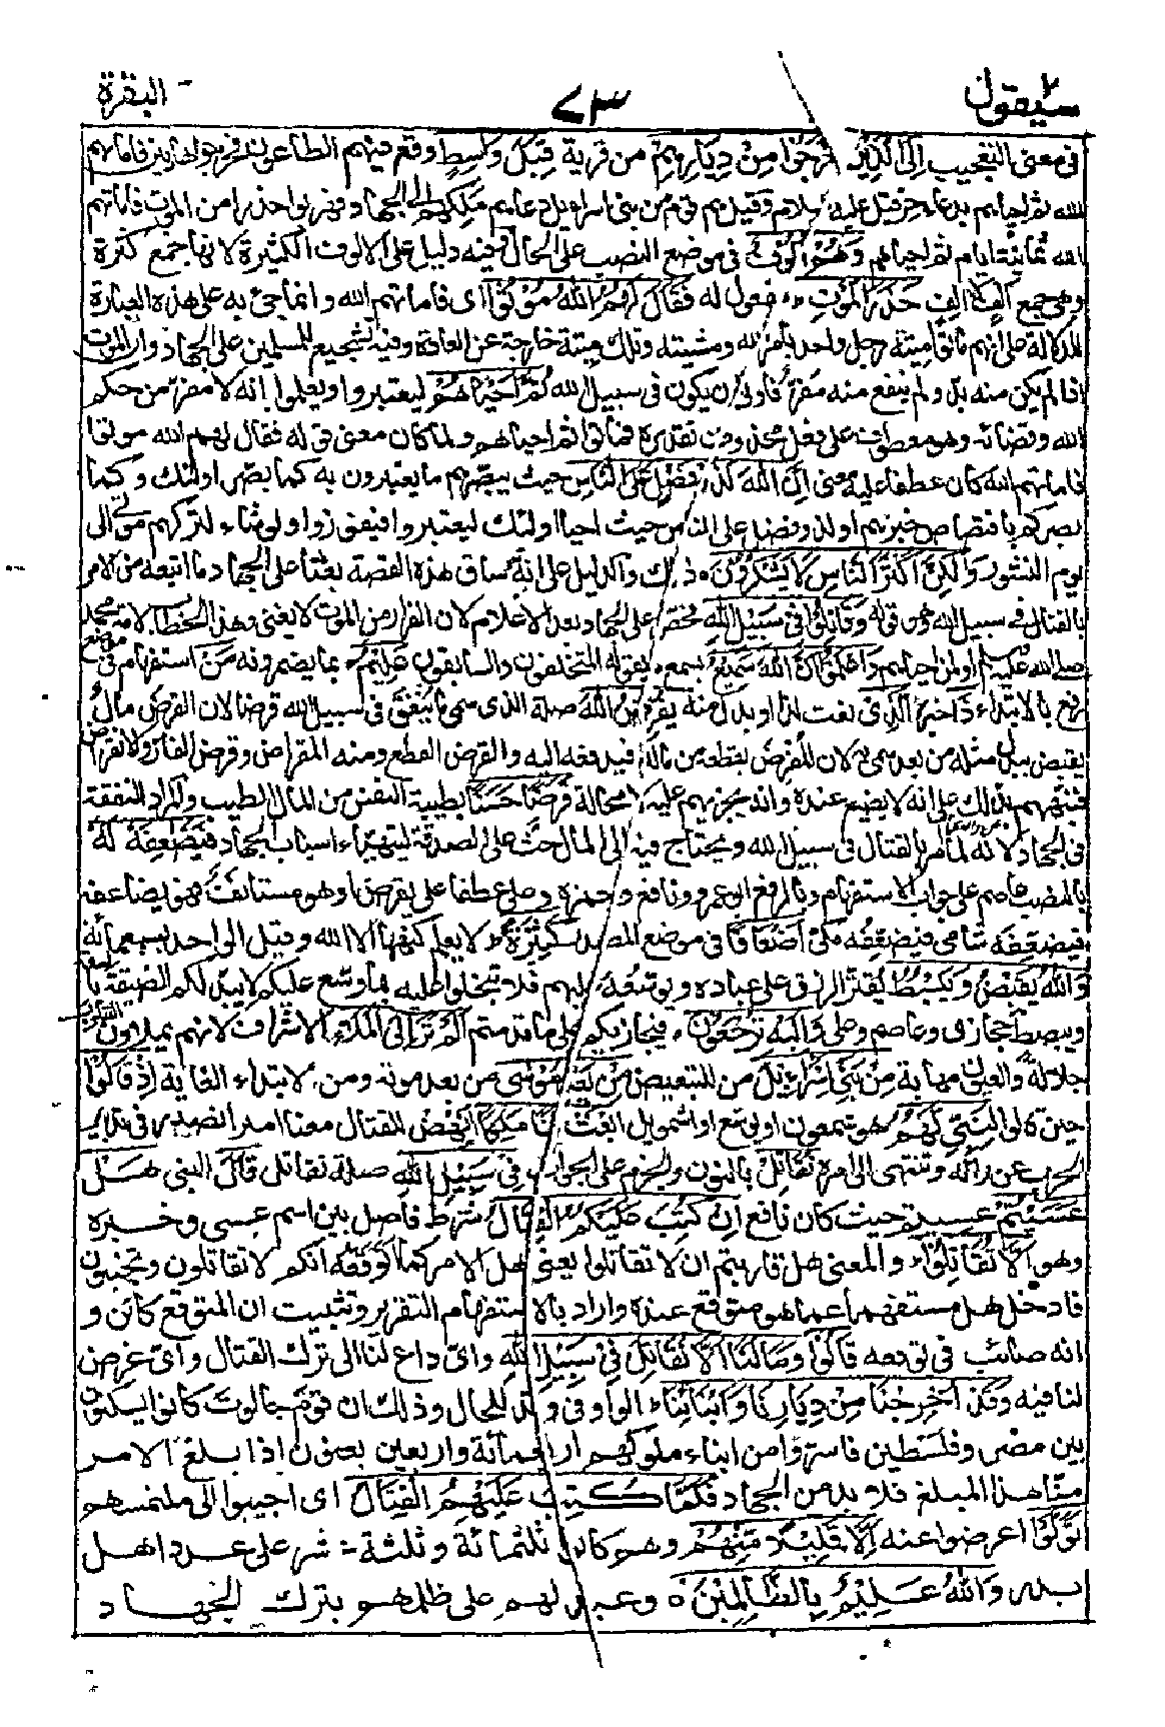 سيقول ٢
٧٣
البقرة
فى معنى التعجيب اِلَى الَّذِيْنَ خَرَجُوْا مِنْ دِيَارِهِمْ من قرية قبل واسط وقع فيهم الطاعون فخرجوا هاربين فاماتهم
الله ثم احياهم بدعاء حزقيل عليه السلام وقيل هم قوم من بنى اسرائيل دعاهم ملكهم الى الجهاد فهربوا حذرا من الموت فاماتهم
الله ثمانية ايام ثم احياهم وَهُمْ اُلُوْفٌ فى موضع النصب على الحال وفيه دليل على الالوف الكثيرة لانها جمع كثرة
وهى جمع الف لا آلف حَذَرَ الْمَوْتِ مفعول له فَقَالَ لَهُمُ اللّٰهُ مُوْتُوْا اى فاماتهم الله وانما جئ به على هذه العبارة
للدلالة على انهم ماتوا ميتة رجل واحد بامر الله ومشيته وتلك ميتة خارجة عن العادة وفيه تشجيع للمسلمين على الجهاد وان الموت
اذا لم يكن منه بد ولم ينفع منه مفر فاولى ان يكون فى سبيل الله ثُمَّ اَحْيَاهُمْ ليعتبروا ويعلموا انه لا مفر من حكم
الله وقضائه وهو معطوف على فعل محذوف تقديره فماتوا ثم احياهم ولما كان معنى قوله فقال لهم الله موتوا
فاماتهم الله كان عطفا عليه معنى اِنَّ اللّٰهَ لَذُوْ فَضْلٍ عَلَى النَّاسِ حيث يبصرهم ما يعتبرون به كما بصر اولئك وكما
بصركم باقتصاص خبرهم او لذو فضل على الناس حيث احيا اولئك ليعتبروا فيفوزوا ولو شاء لتركهم موتى الى
يوم النشور وَلٰكِنَّ اَكْثَرَ النَّاسِ لَا يَشْكُرُوْنَ ذلك والدليل على انه ساق هذه القصة بعثا على الجهاد ما اتبعه من الامر
بالقتال فى سبيل الله وهو قوله وَقَاتِلُوْا فِىْ سَبِيْلِ اللّٰهِ فحرض على الجهاد بعد الاعلام لان الفرار من الموت لا يغنى وهذا الخطاب لامة محمد
صلى الله عليه وسلم او لمن احياهم وَاعْلَمُوْا اَنَّ اللّٰهَ سَمِيْعٌ يسمع ما يقوله المتخلفون والسابقون عَلِيْمٌ بما يضمرونه مَنْ استفهام فى موضع
رفع بالابتداء ذَا خبره الَّذِىْ نعت لذا او بدل منه يُقْرِضُ اللّٰهَ صلة الذى سمى ما ينفق فى سبيل الله قرضا لان القرض مال
يقبض ببدل مثله من بعد سمى به لان المقرض يقطعه من ماله فيدفعه اليه والقرض القطع ومنه المقراض وقرض الفار والانقراض
فنبههم بذلك على انه لا يضيع عنده وانه يجزيهم عليه لا محالة قَرْضًا حَسَنًا بطيبة النفس من المال الطيب والمراد النفقة
فى الجهاد لانه لما امر بالقتال فى سبيل الله ويحتاج فيه الى المال حث على الصدقة ليتهيأ اسباب الجهاد فَيُضٰعِفَهٗ لَهٗ
بالنصب عاصم على جواب الاستفهام وبالرفع ابو عمرو ونافع وحمزة وعلى عطفا على يقرض او هو مستانف اى فهو يضاعفه
فيضعّفه شامى فيضعّفه مكى اَضْعَافًا فى موضع المصدر كَثِيْرَةً لا يعلم كنهها الا الله وقيل الواحد بسبعمائة
وَاللّٰهُ يَقْبِضُ وَيَبْسُطُ يقتر الرزق على عباده ويوسعه عليهم فلا تبخلوا عليه بما وسع عليكم لا يبدلكم الضيقة بالسعة
ويبصط حجازى وعاصم وعلى وَاِلَيْهِ تُرْجَعُوْنَ فيجازيكم على ما قدمتم اَلَمْ تَرَ اِلَى الْمَلَاِ الاشراف لانهم يملاون القلوب
جلالة والعيون مهابة مِنْ بَنِىْ اِسْرَاۤءِيْلَ من للتبعيض مِنْ بَعْدِ مُوْسٰى من بعد موته ومن لابتداء الغاية اِذْ قَالُوْا
حين قالوا لِنَبِىٍّ لَّهُمُ هو شمعون او يوشع او اشمويل ابْعَثْ لَنَا مَلِكًا انهض للقتال معنا امير الصدر فى تدبير
الحرب عن رأيه وننتهى الى امره نُقَاتِلْ بالنون والجزم على الجواب فِىْ سَبِيْلِ اللّٰهِ صلة نقاتل قَالَ النبى هَلْ
عَسَيْتُمْ عسيتم حيث كان نافع اِنْ كُتِبَ عَلَيْكُمُ الْقِتَالُ شرط فاصل بين اسم عسى وخبره
وهو اَلَّا تُقَاتِلُوْا والمعنى هل قاربتم ان لا تقاتلوا يعنى هل الامر كما اتوقعه انكم لا تقاتلون وتجبنون
فادخل هل مستفهما عما هو متوقع عنده واراد بالاستفهام التقرير وتثبيت ان المتوقع كائن و
انه صائب فى توقعه قَالُوْا وَمَا لَنَا اَلَّا نُقَاتِلَ فِىْ سَبِيْلِ اللّٰهِ واى داع لنا الى ترك القتال واى غرض
لنا فيه وَقَدْ اُخْرِجْنَا مِنْ دِيَارِنَا وَاَبْنَائِنَا الواو فى وقد للحال وذلك ان قوم جالوت كانوا يسكنون
بين مصر وفلسطين فاسروا من ابناء ملوكهم اربعمائة واربعين يعنون اذا بلغ الامر
منا هذا المبلغ فلا بد من الجهاد فَلَمَّا كُتِبَ عَلَيْهِمُ الْقِتَالُ اى اجيبوا الى ملتمسهم
تَوَلَّوْا اعرضوا عنه اِلَّا قَلِيْلًا مِّنْهُمْ وهم كانوا ثلثمائة وثلثة عشر على عدد اهل
بدر وَاللّٰهُ عَلِيْمٌ بِالظّٰلِمِيْنَ وعيد لهم على ظلمهم بترك الجهاد